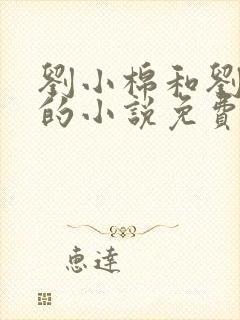 劉小棉和劉
的小説免費
恵達